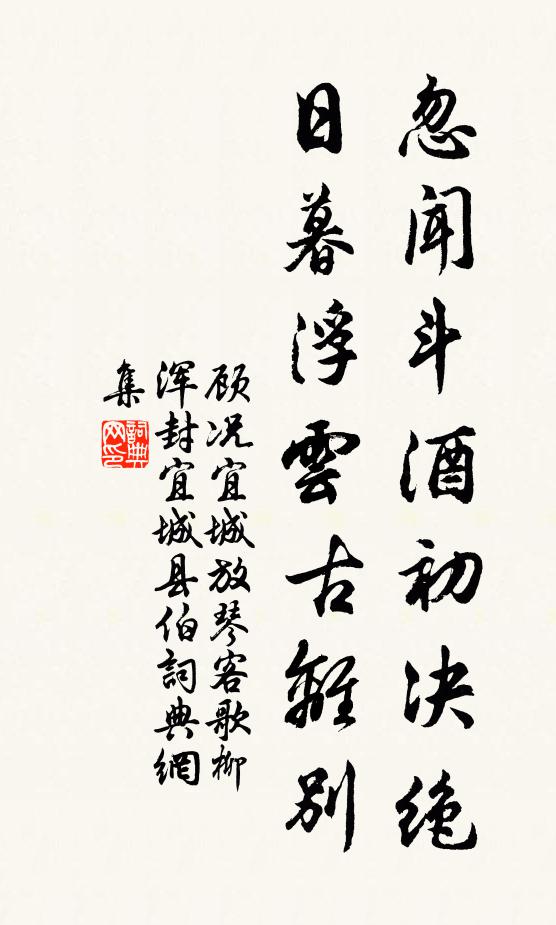 忽闻斗酒初决绝
日暮浮雲古離别
顾况宜城放琴客歌柳
浑封宜城县伯詞典網
集
詞典
网印